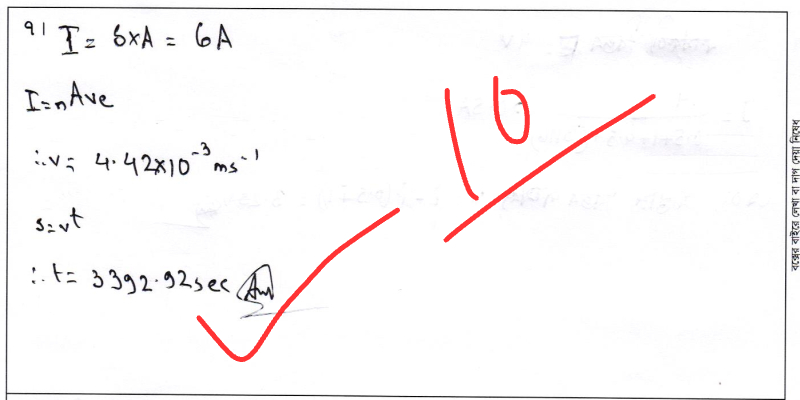 ৭১ I = 6×A = 6A
I=nAve
∴v= 4.42×10⁻³ ms⁻¹
s=vt
∴t= 3392.92sec (Ans)
10
বক্সের বাইরে লেখা বা দাগ দেয়া নিষেধ